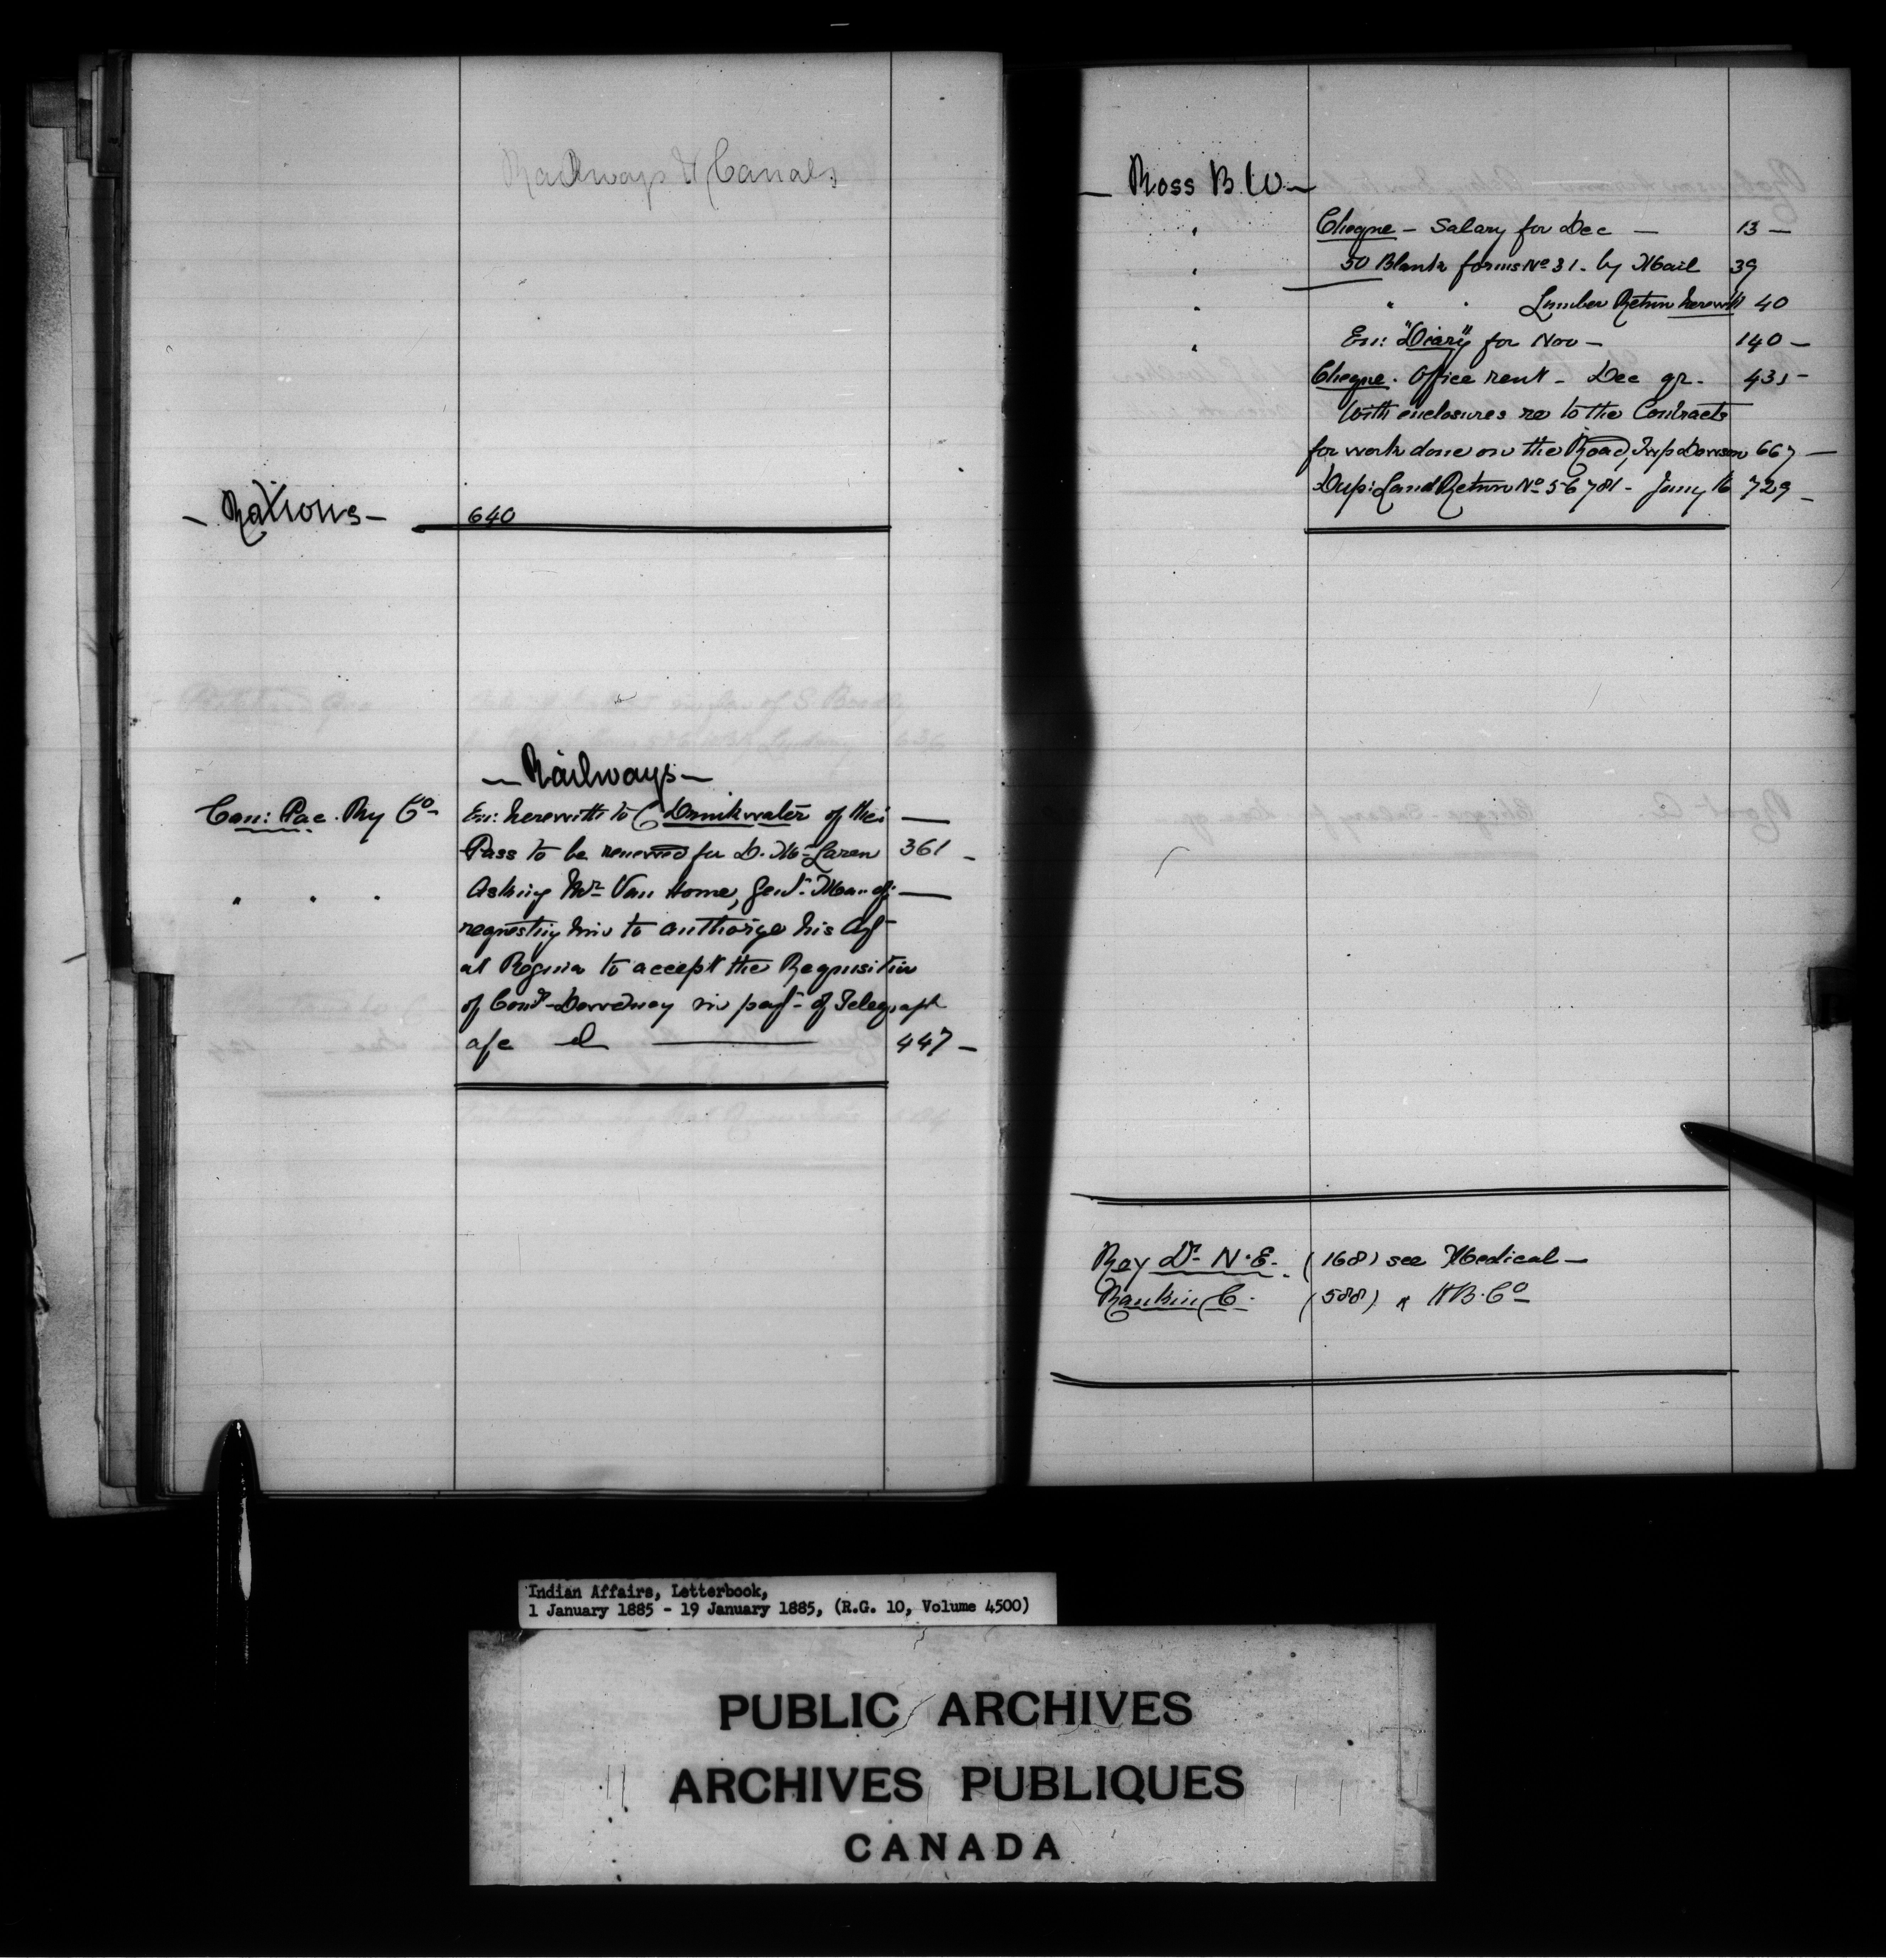 Railways & Canals
- Rations -
640
- Railways -
Can: Pac. Ry Co - En: herewith to C Drinkwater of their
Pass to be renewed for D. McLaren 361 -
" " " Asking Mr Van Horne, Genl. Manr
requesting him to authorize his Agt
at Regina to accept the Requisition
of Comr Dewdney in payt of Telegraph
a/c 447 -
- Ross B. W -
" Cheque - Salary for Dec - 13 -
" 50 Blank forms No 31. by Mail 39
" " " Lumber Return herewith 40
" En: "Diary" for Nov - 140 -
Cheque. Office rent - Dec qr. 431 -
With enclosures re to the Contracts
for work done on the Road, Twp Dawson 667 -
Dup: Land Return No 56781 - Jany 16 729 -
Roy Dr N. E. (168) see Medical -
Rankin C. (588) " H B. Co -
Indian Affairs, Letterbook,
1 January 1885 - 19 January 1885, (R.G. 10, Volume 4500)
PUBLIC ARCHIVES
ARCHIVES PUBLIQUES
CANADA